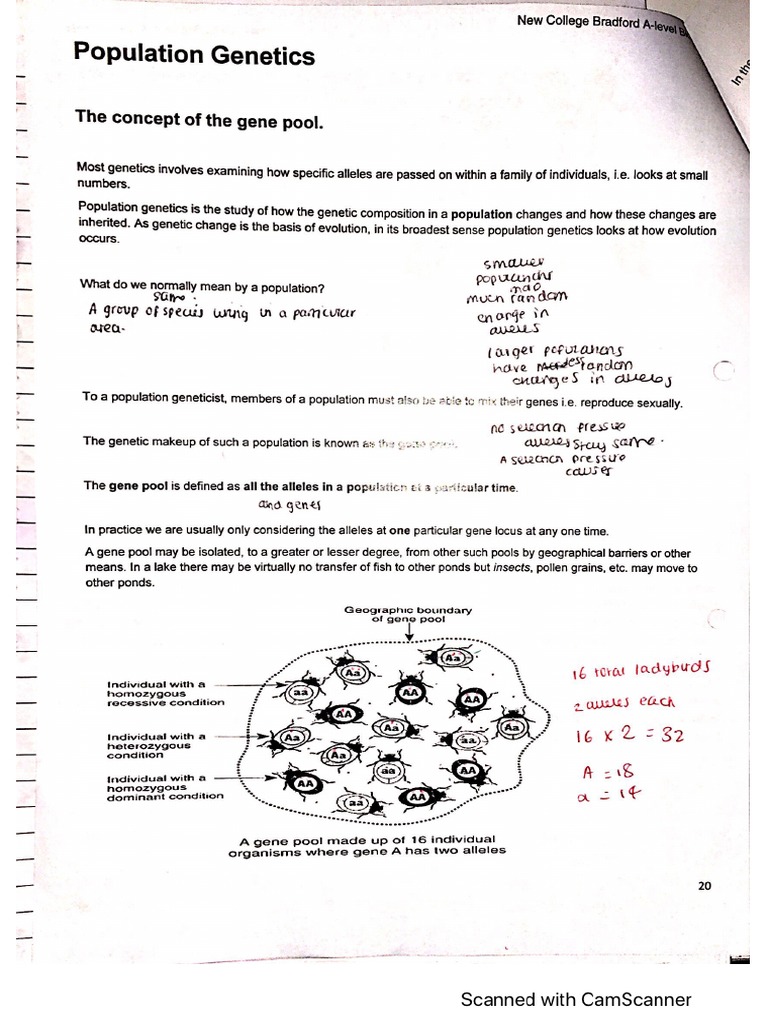 New College Bradford A-level
In the
Population Genetics
The concept of the gene pool.
Most genetics involves examining how specific alleles are passed on within a family of individuals, i.e. looks at small
numbers.
Population genetics is the study of how the genetic composition in a population changes and how these changes are
inherited. As genetic change is the basis of evolution, in its broadest sense population genetics looks at how evolution
occurs.
What do we normally mean by a population?
same
A group of species living in a particular
area.
smaller
populations
much random
change in
alleles
larger populations
have less random
changes in alleles
To a population geneticist, members of a population must also be able to mix their genes i.e. reproduce sexually.
no selection pressure
alleles stay same.
The genetic makeup of such a population is known as the gene pool.
A selection pressure
causes
The gene pool is defined as all the alleles in a population at a particular time.
and genes
In practice we are usually only considering the alleles at one particular gene locus at any one time.
A gene pool may be isolated, to a greater or lesser degree, from other such pools by geographical barriers or other
means. In a lake there may be virtually no transfer of fish to other ponds but insects, pollen grains, etc. may move to
other ponds.
Geographic boundary
of gene pool
Individual with a
homozygous
recessive condition
Individual with a
heterozygous
condition
Individual with a
homozygous
dominant condition
Aa
Aa
aa
AA
AA
AA
Aa
Aa
Aa
aa
Aa
aa
AA
AA
aa
AA
16 total ladybirds
2 alleles each
16 x 2 = 32
A = 18
a = 14
A gene pool made up of 16 individual
organisms where gene A has two alleles
20
Scanned with CamScanner